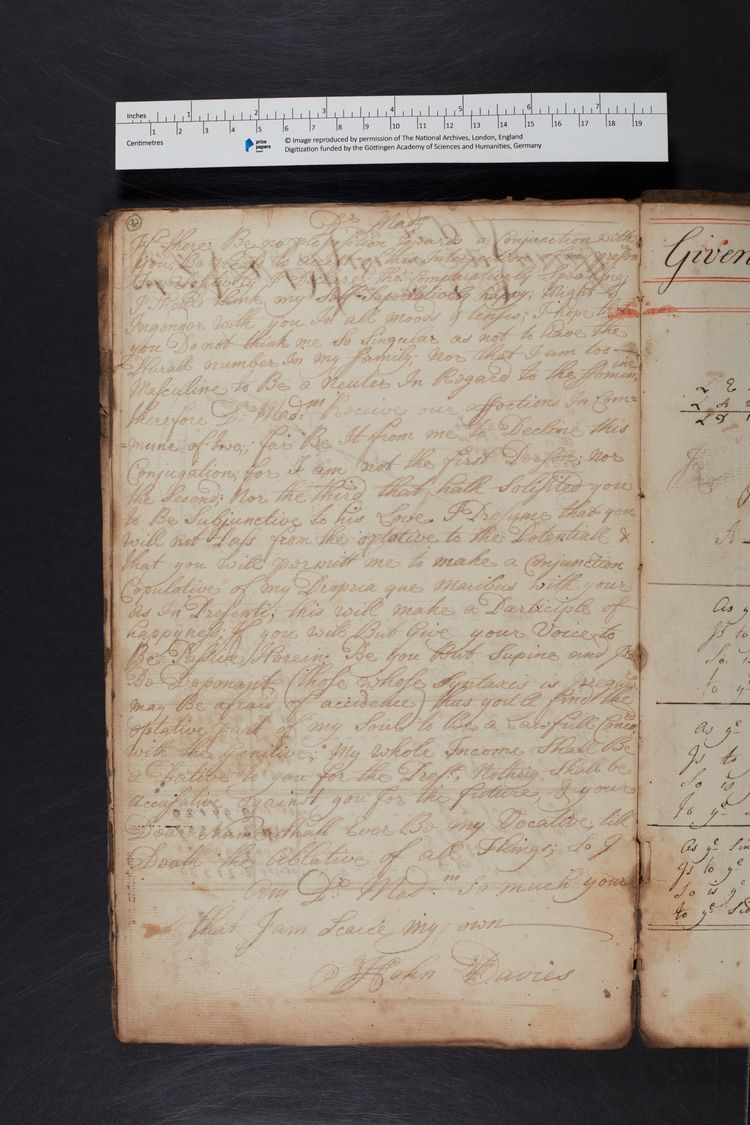 Inches 1 2 3 4 5 6 7
1 2 3 4 5 6 7 8 9 10 11 12 13 14 15 16 17 18 19
Centimetres
prize papers
© Image reproduced by permission of The National Archives, London, England
Digitization funded by the Göttingen Academy of Sciences and Humanities, Germany
Dr. Madm
If there Be no objection towards a Conjunction with
you, Be pleased to accept of this Interjection of my
Positively I Declare, the Comparatively Speaking
I think my Self Superlatively happy; Might I
Ingender with you In all moods & tenses; I hope that
you Do not think me So Singular as not to leave the
Plurall number In my family; Nor that I am too
Masculine to Be a Neuter In Regard to the ffeminine
therefore Dr. Madm Receive our affections In Com=
=mune of two; far Be It from me to Decline this
Conjugation; for I am not the first Person; Nor
the Second; Nor the third that hath Solisited you
to Be Subjunctive to his Love I Presume that you
will not Pass from the optative to the Potentiall &
that you will permitt me to make a Conjunction
Copulative of my Propria que maribus with your
As In Presenti; this will make a Participle of
happyness, If you will But Give your Voice to
Be Passive herein; Be you But Supine and Ile
Be Deponant, (those whose Syntaxis is irregular
may Be afraid of accidence) thus you'll find the
optative part of my Soul to Be a Lawfull Concord
with the Genitive; My whole Income Shall Be
a Dative to you for the Prest. Nothing Shall be
accusative against you for the future, & your
Dear Name Shall Ever Be my Vocative, till
Death the Ablative of all Things; So I
Am Dr. Madm So much your
that I am Scarce my own
John Davies
Given